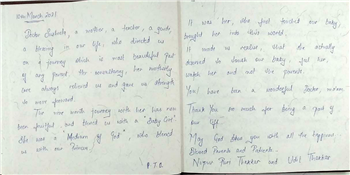 10th March 2021
Doctor Sushrata, a mother, a teacher, a guide,
a blessing in our life, who directed us
on a journey which is most beautiful part
of any parent, the uncertainty, her positivity
care always relieved us and gave us strength
to move forward.
The nine month journey with her has now
been fruitful, and blessed us with a "Baby Girl"
She was a "Medium of God", who blessed
us with our Princess
P.T.O.
It was her, who first touched our baby,
bought her into this world.
It made us realise, that she actually
deserved to touch our baby, feel her,
watch her and not the parents.
You have been a wonderful Doctor ma'am.
Thank You so much for being a part of
our life.
May God bless you with all the happiness
Blessed Parents and Patients.
Thakker and Thakker